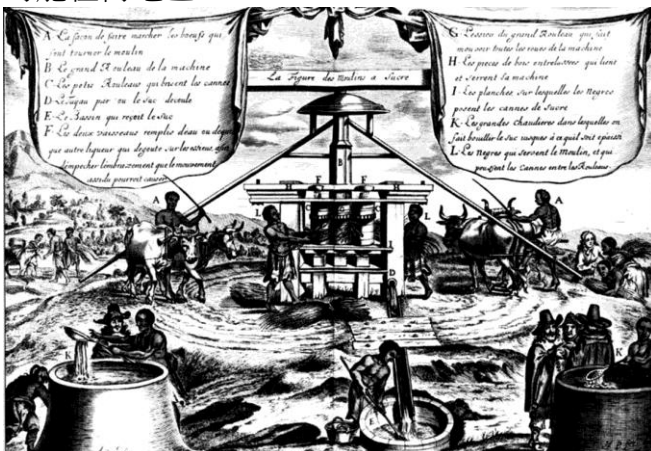 A La facon de faire marcher les bœufs qui
font tourner le moulin
B Le grand Rouleau de la machine
C Les petis Rouleaux qui brisent les cannes
D Le tuyau par ou le suc decoule
E Le Bassin qui reçoit le suc
F Les deux vaisseaux remplis deau ou
que autre liqueur qui degoute sur les
dempecher lembrazement que le mouvement
assidu pourroit causer
G Lessieu du grand Rouleau qui fait
mouvoir toutes les roues de la machine
H Les pieces de bois entrelassees qui lient
et serrent la machine
I Les planches sur lesquelles les negres
posent les cannes de sucre
K Les grandes chaudieres dans lesquelles on
fait bouillir le suc jusques a ce quil soit epaissi
L Les negres qui servent le Moulin, et qui
pressent les Cannes entre les Rouleaux
La Figure des Moulins a Sucre
B
A
F
F
L
L
A
D
K
K